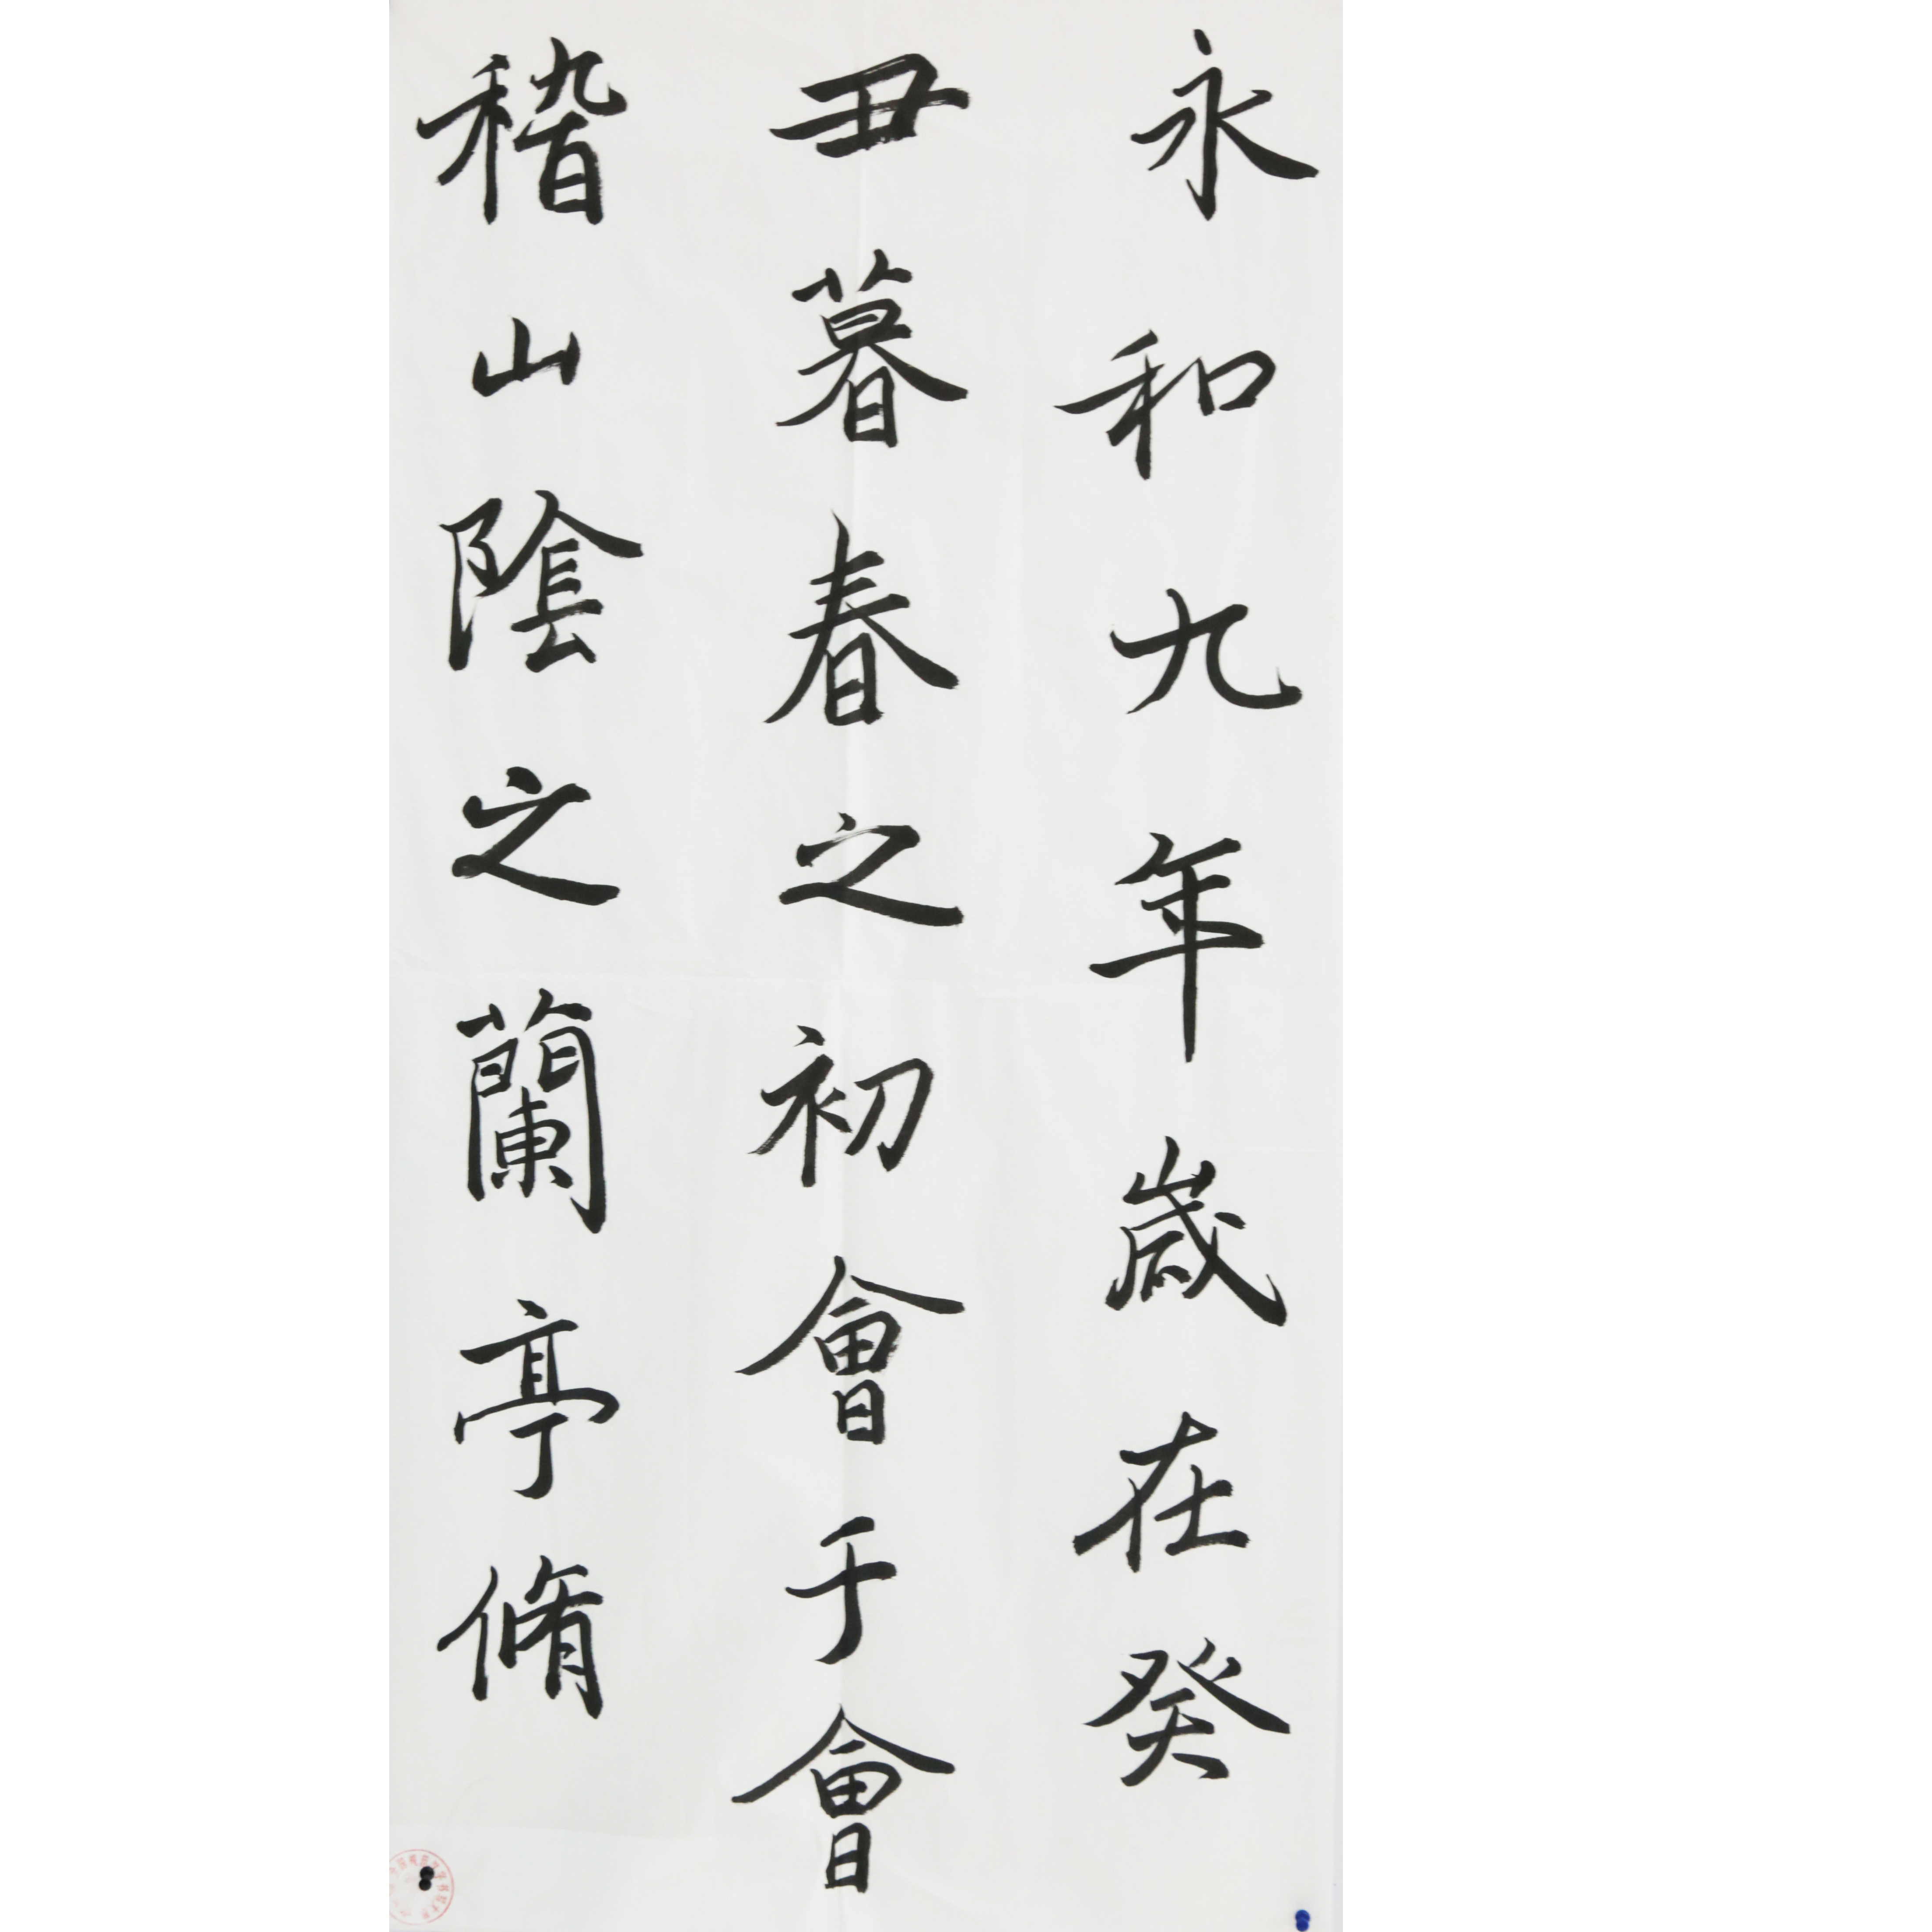 永和九年歲在癸
丑暮春之初會于會
稽山陰之蘭亭脩